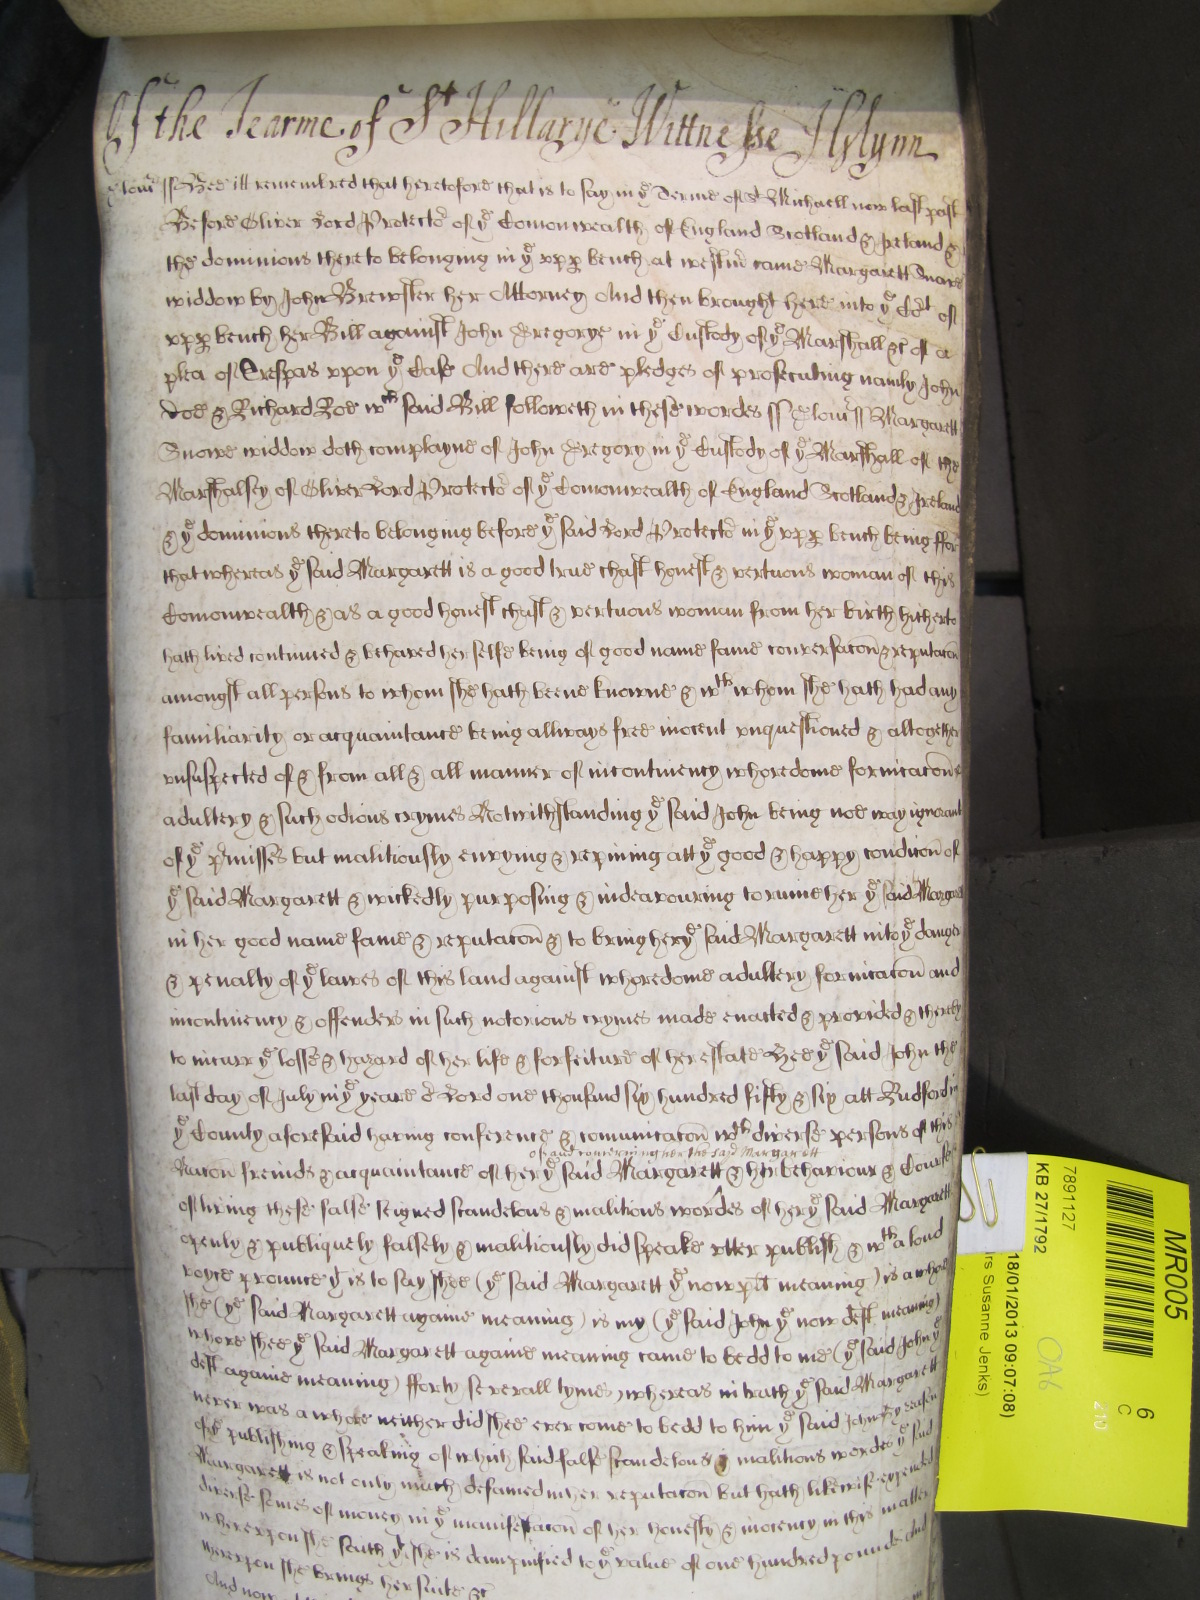 Of the Tearme of St Hillarye Wittnesse J Glynn
Glouc ss Bee itt remembred that heretofore that is to say in ye Terme of St Michaell now last past
Before Oliver Lord Protector of ye Comonwealth of England Scotland & Ireland &
the dominions thereto belonging in ye upp bench at westmr came Margarett Snowe
widdow by John Brewster her Attorney And then brought here into ye Cort of
upp bench her Bill against John Gregorye in ye Custody of ye Marshall &c of a
plea of Trespas upon ye Case And there are pledges of prosecuting namly John
Doe & Richard Roe wch said Bill followeth in these wordes ss Glouc ss Margarett
Snowe widdow doth complayne of John Gregory in ye Custody of ye Marshall of the
Marshalsey of Oliver Lord Protector of ye Comonwealth of England Scotland & Ireland
& ye dominions thereto belonging before ye said Lord Protector in ye upp bench being ffor
that whereas ye said Margarett is a good true chast honest & vertuous woman of this
Comonwealth & as a good honest chast & vertuous woman from her birth hitherto
hath lived continued & behaved her selfe being of good name fame conversacon & reputacon
amongst all persons to whom she hath beene knowne & wth whom she hath had any
familiarity or acquaintance being allways free inocent unquestioned & altogether
unsuspected of & from all & all manner of incontinency whoredome fornicacon &
adultery & such odious crymes Notwithstanding ye said John being noe way ignorant
of ye premisses but malitiously envying & repining att ye good & happy condicon of
ye said Margarett & wickedly purposing & indeavouring to ruine her ye said Margarett
in her good name fame & reputacon & to bring her ye said Margarett into ye danger
& penalty of ye lawes of this land against whoredome adultery fornicacon and
incontinency & offenders in such notorious crymes made enacted & provided & thereby
to incurr ye losse & hazard of her life & forfeiture of her estate Hee ye said John the
last day of July in ye yeare of or Lord one thousand six hundred fifty & six att Rudford in
ye County aforesaid having conference & comunicacon wth diverse persons of this
of and concerning her the said Margarett
Nacon freinds & acquaintance of her ye said Margarett & her behaviour & Course
of living these false feigned scandelous & malitious wordes of her ye said Margarett
openly & publiquely falsely & malitiously did speake utter publish & wth a loud
voyce prounce yt is to say shee (ye said Margarett ye now plt meaning) is a whore
she (ye said Margarett againe meaning) is my (ye said John ye now deft meaning)
whore shee ye said Margarett againe meaning came to bedd to me (ye said John ye
deft againe meaning) fforty severall tymes whereas in truth ye said Margarett
never was a whore neither did shee ever come to bedd to him ye said John By reason
of ye publishing & speaking of which said false scandelous & malitious wordes ye said
Margarett is not only much defamed in her reputacon but hath likewise expended
diverse somes of money in ye manifestacon of her honesty & inocency in this matter
whereupon she saith yt she is dampnified to ye value of one hundred pounds And
thereupon she brings her suite &c
And now
MR005
7891127
KB 27/1792
18/01/2013 09:07:08)
rs Susanne Jenks)
OA6
6
C
210